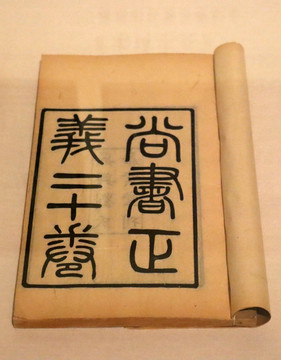 尚書正
義二十卷